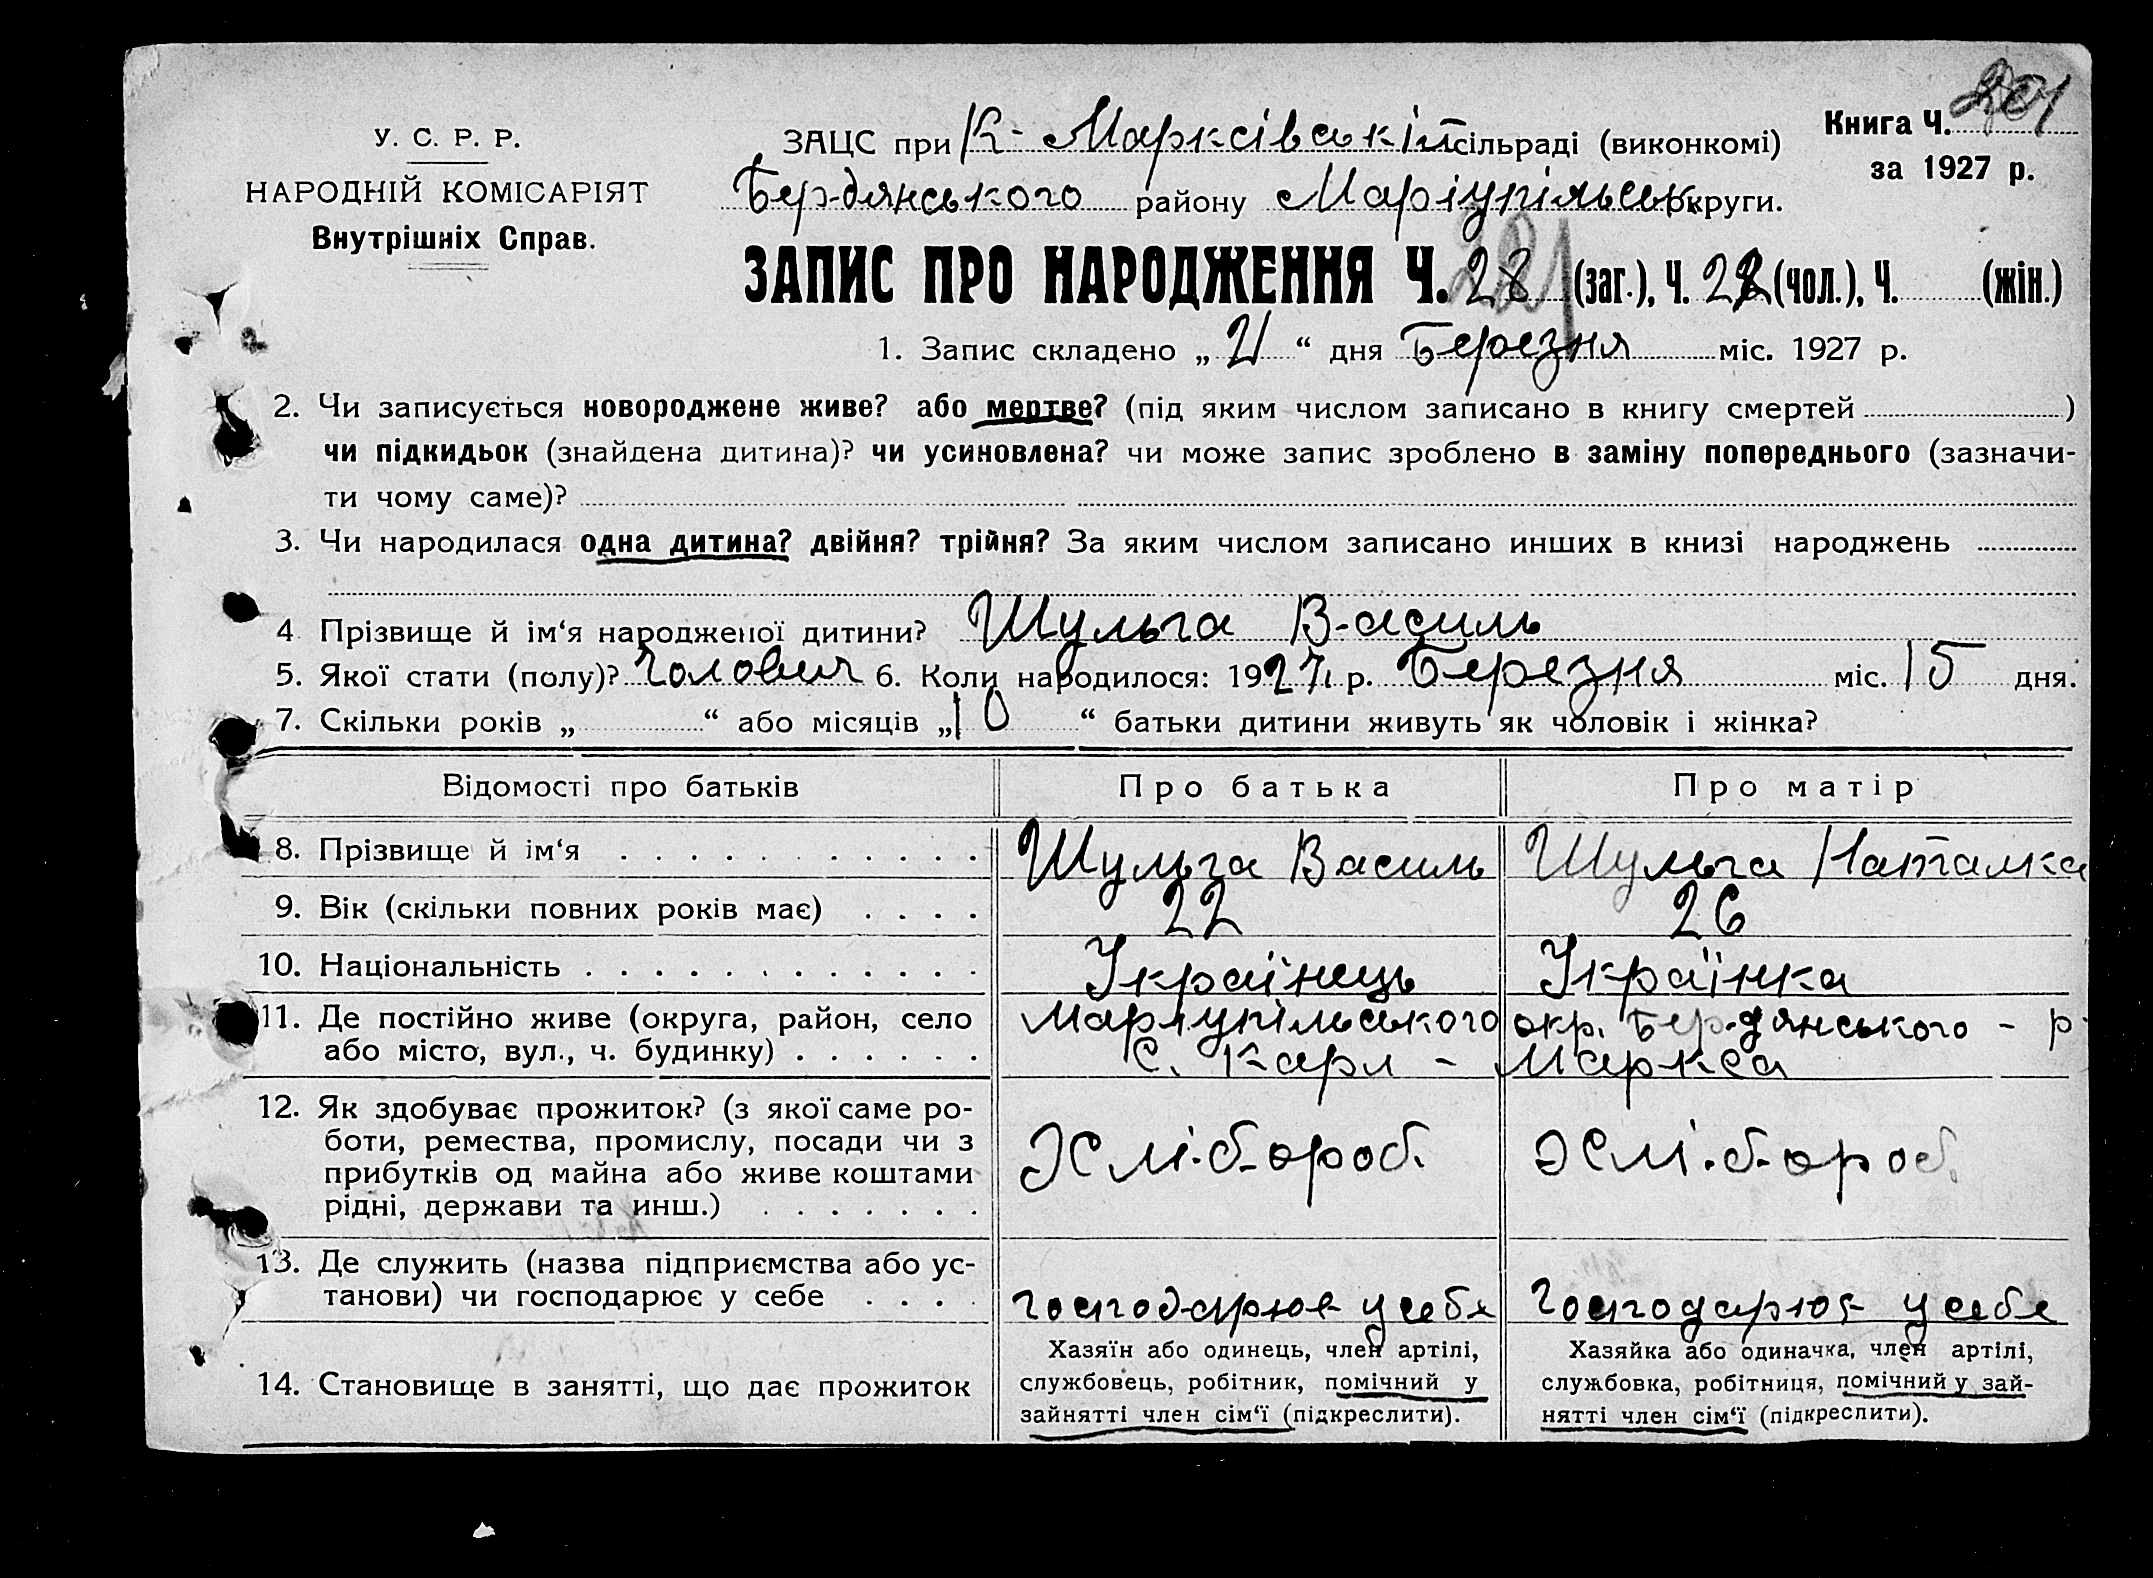 У. С. Р. Р.
НАРОДНІЙ КОМІСАРІЯТ
Внутрішніх Справ.
Книга Ч. 201
за 1927 р.
ЗАЦС при К-Марксівській сільраді (виконкомі)
Бердянського району Маріупільськ округи.
ЗАПИС ПРО НАРОДЖЕННЯ Ч. 28 (заг.), Ч. 22 (чол.), Ч. (жін.)
1. Запис складено „ 21 “ дня Березня міс. 1927 р.
2. Чи записується новороджене живе? або мертве? (під яким числом записано в книгу смертей )
чи підкидьок (знайдена дитина)? чи усиновлена? чи може запис зроблено в заміну попереднього (зазначи-
ти чому саме)?
3. Чи народилася одна дитина? двійня? трійня? За яким числом записано инших в книзі народжень
4 Прізвище й ім‘я народженої дитини? Шульга Василь
5. Якої стати (полу)? Чоловіч 6. Коли народилося: 1927 р. Березня міс. 15 дня.
7. Скільки років „ “ або місяців „ 10 “ батьки дитини живуть як чоловік і жінка?
Відомості про батьків Про батька Про матір
8. Прізвище й ім‘я Шульга Василь Шульга Наталка
9. Вік (скільки повних років має) 22 26
10. Національність Українець Українка
11. Де постійно живе (округа, район, село Маріупільського окр. Бердянського - р
або місто, вул., ч. будинку) с. Карл - Маркса
12. Як здобуває прожиток? (з якої саме ро-
боти, ремества, промислу, посади чи з Хлі-бороб. Хлі-бороб.
прибутків од майна або живе коштами
рідні, держави та инш.)
13. Де служить (назва підприємства або ус-
танови) чи господарює у себе Господарює у себе Господарює у себе
14. Становище в занятті, що дає прожиток
Хазяїн або одинець, член артілі,
службовець, робітник, помічний у
зайнятті член сім‘ї (підкреслити).
Хазяйка або одиначка, член артілі,
службовка, робітниця, помічний у зай-
нятті член сім‘ї (підкреслити).